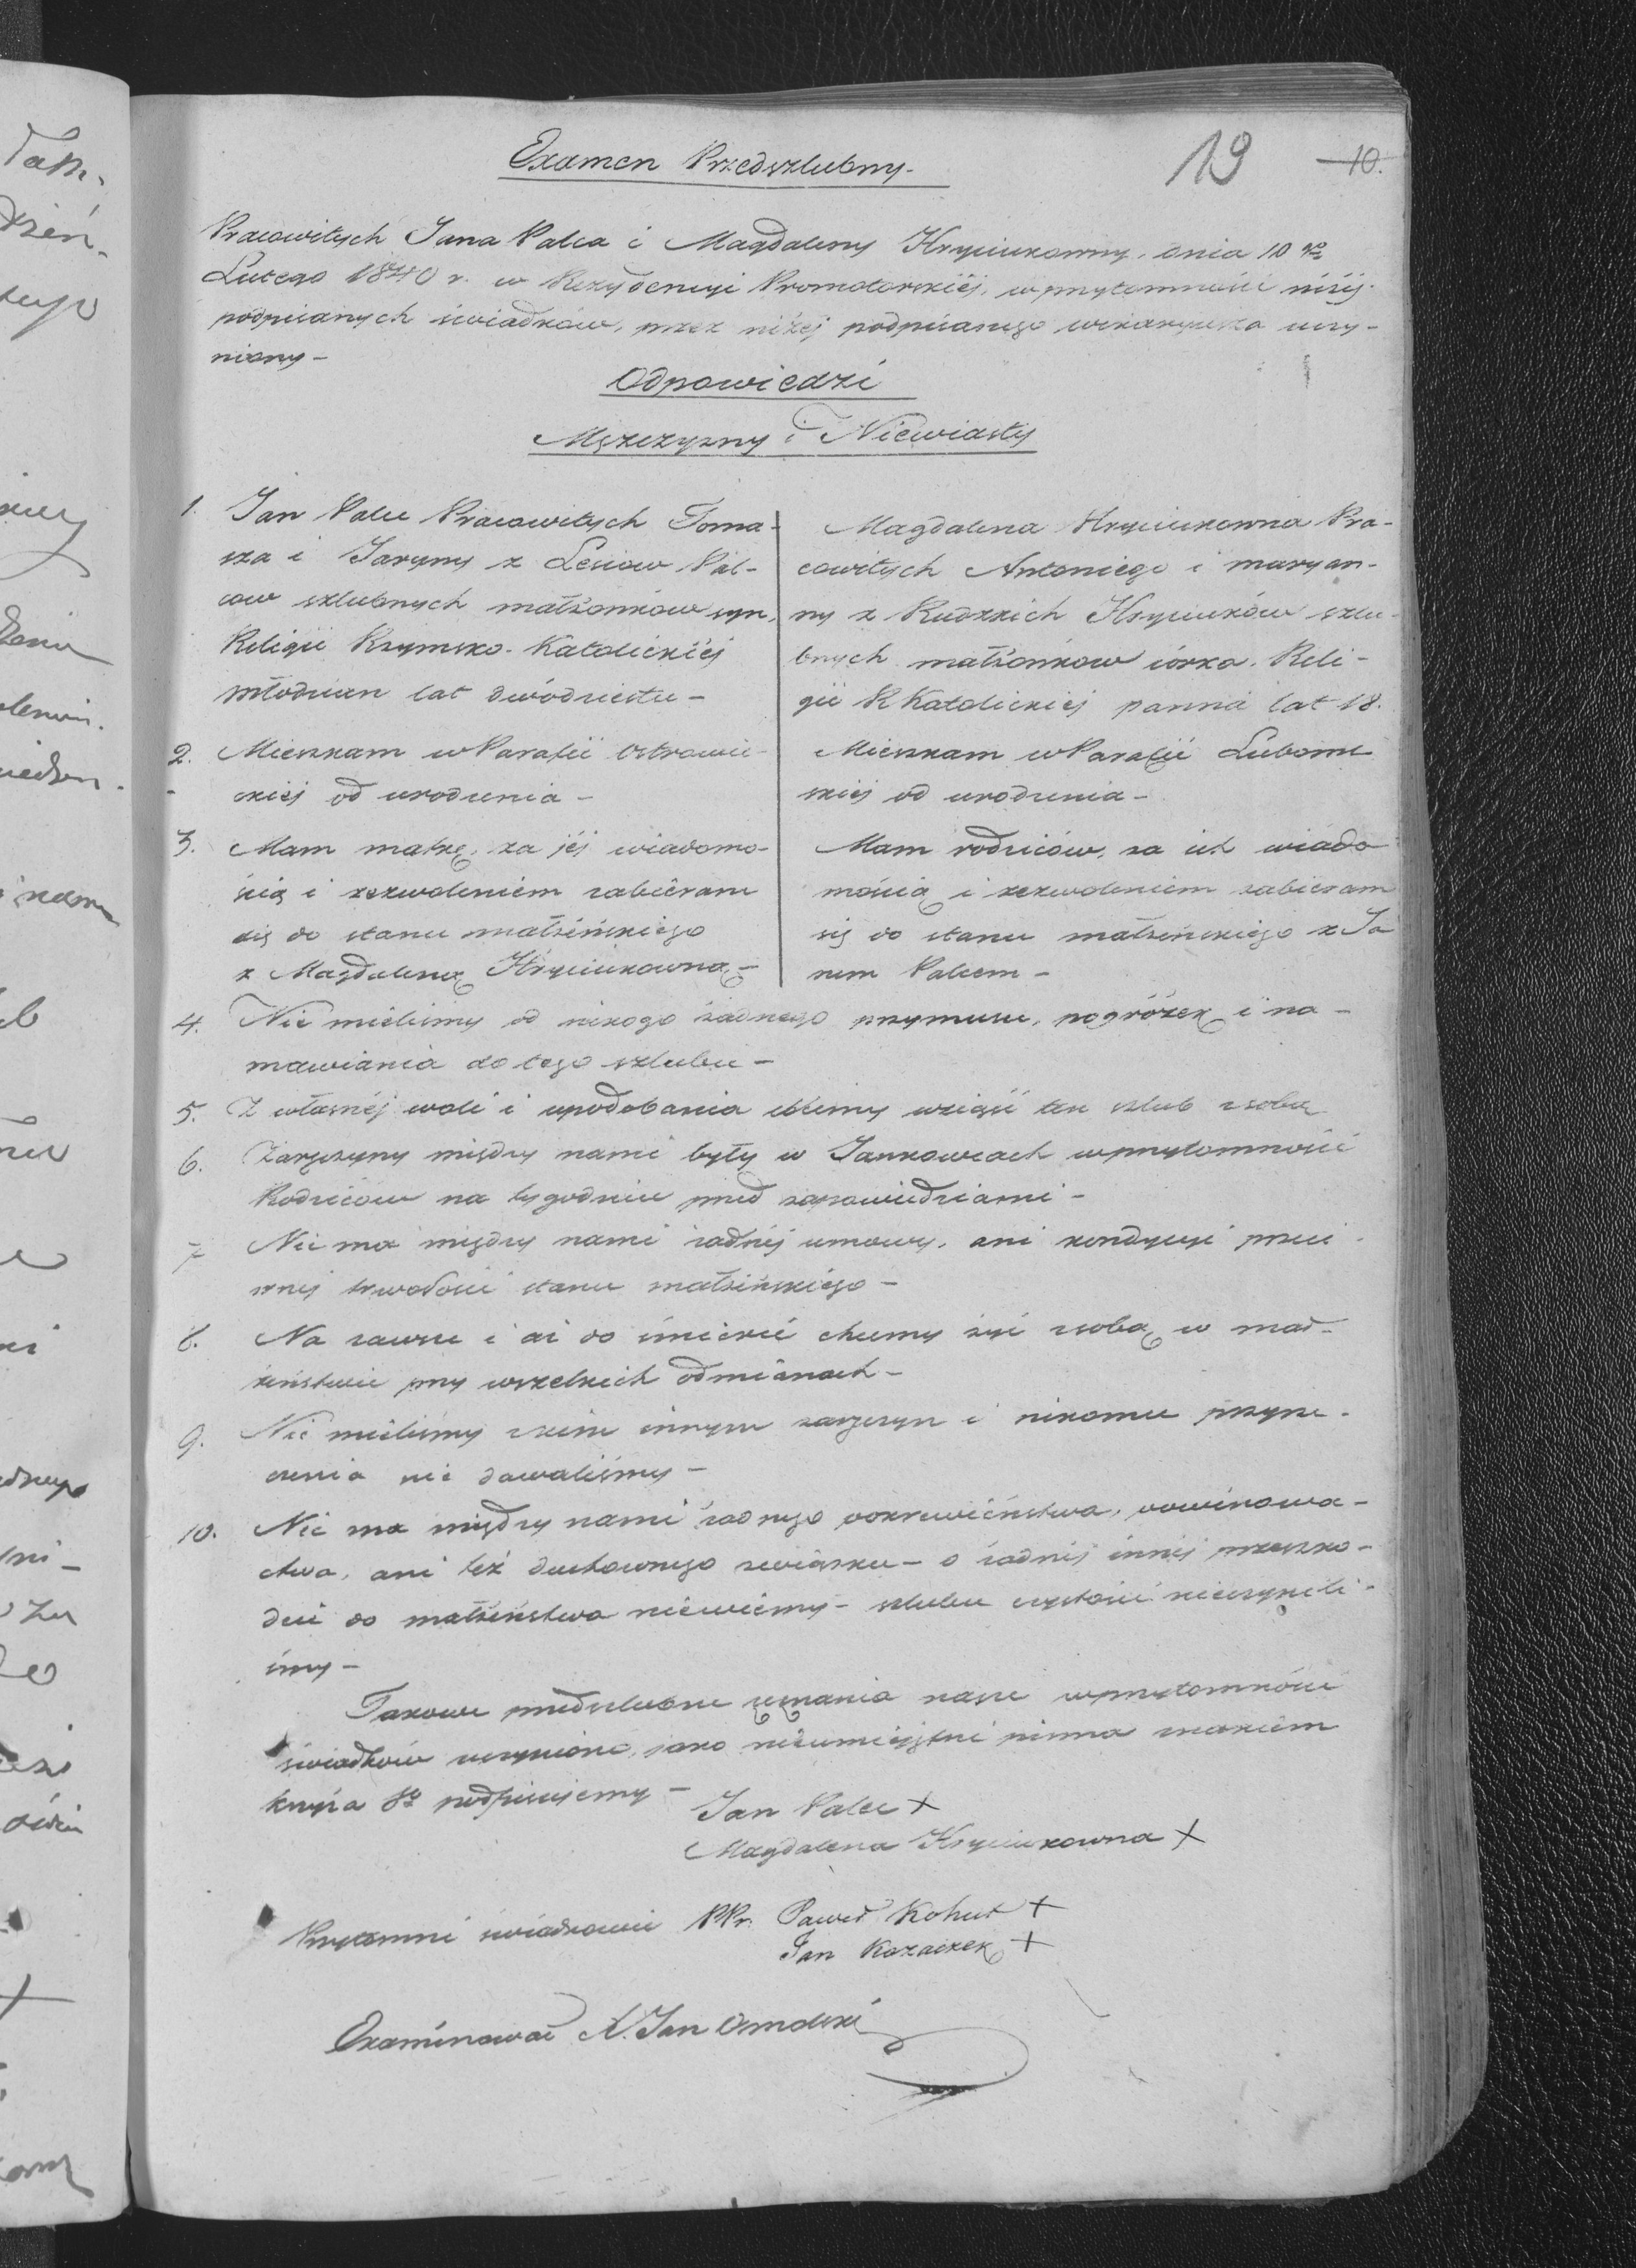 Examen Przedszlubny -
19 10.
Pracowitych Jana Palca i Magdaleny Hryciukowny, dnia 10 go
Lutego 1840 r. w Rezydencyi Promotorskiéj, w przytomności niżéj
podpisanych świadków, przez niżéj podpisanego wikaryusza uczy-
niony -
Odpowiedzi
Męzczyzny i Niewiasty
1. Jan Palec Pracowitych Toma-
sza i Jaryny z Lesiow Pal-
cow szlubnych małżonków syn,
Religii Rzymsko-Katolickiéj
młodzian lat dwódziestu -
Magdalena Hryciukowna Pra-
cowitych Antoniego i maryan-
ny z Rudzkich Hryciuków szlu-
bnych małżonkow córka. Reli-
gii R Katolickiéj panna lat 18.
2. Mieszkam w Parafii Ostrowie-
ckiéj od urodzenia -
Mieszkam w Parafii Luboml-
skiéj od urodzenia -
3. Mam matkę, za jéj wiadomo-
ścią i zezwoleniem zabiéram
się do stanu małżeńskiego
z Magdaleną Hryciukowną -
Mam rodziców, za ich wiado
mością i zezwoleniem zabieram
się do stanu małżeńskiego z Ja
nem Palcem -
4. Nie mieliśmy od nikogo żadnego przymusu, pogróżek i na-
mawiania do tego szlubu -
5. Z własnéj woli i upodobania idziemy wziąść ten szlub z sobą
6. Zaręczyny między nami były w Jankowcach w przytomności
Rodziców na tygodniu przed zapowiedziami -
7 Nie ma między nami żadnéj umowy, ani kondycyi prze­ci-
wnej trwałości stanu małżeńskiego -
8. Na zawsze i aż do śmierci chcemy żyć z sobą w mał-
żeństwie przy wszelkich odmianach -
9. Nie mieliśmy z kim innym zaręczyn i nikomu przyrze-
czenia nie dawaliśmy -
10. Nie ma między nami żadnego pokrewieństwa, powinowa-
ctwa, ani też duchownego związku - o żadnéj innéj przeszko-
dzie do małżeństwa niewiemy - szlubu czystości nieczynili-
śmy -
Takowe przedszlubne zeznania nasze w przytomności
świadków uczynione, jako nieumiejętni pisma znakiem
krzyża Sgo podpisujemy -
Jan Palec X
Magdalena Hryciukowna X
Przytomni świadkowie PPr. Paweł Kohut +
Jan Kozaczek +
Examinował X. Jan